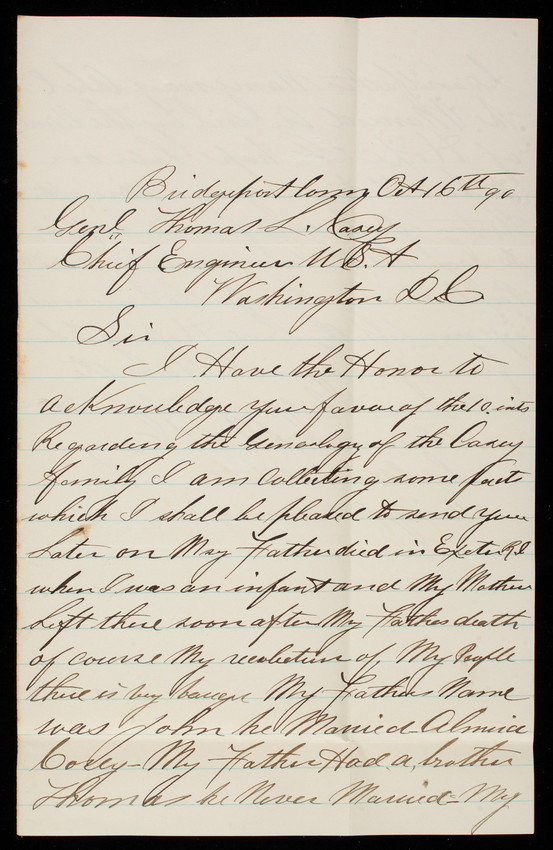 Bridgeport Conn Oct 16th 90
Genl Thomas L. Casey
Chief Engineer U.S.A
Washington D C
Sir
I Have the Honor to
acknowledge your favor of the 10. inst
Regarding the Genealogy of the Casey
family I am Collecting some facts
which I shall be pleased to send you
Later on My Father died in Exeter R.I
when I was an infant and My Mother
Left there soon after My Fathers death
of course My recolection of My People
there is very vague My Fathers Name
was John he Married Almira
My Father Had a brother
Thomas he Never Married - My